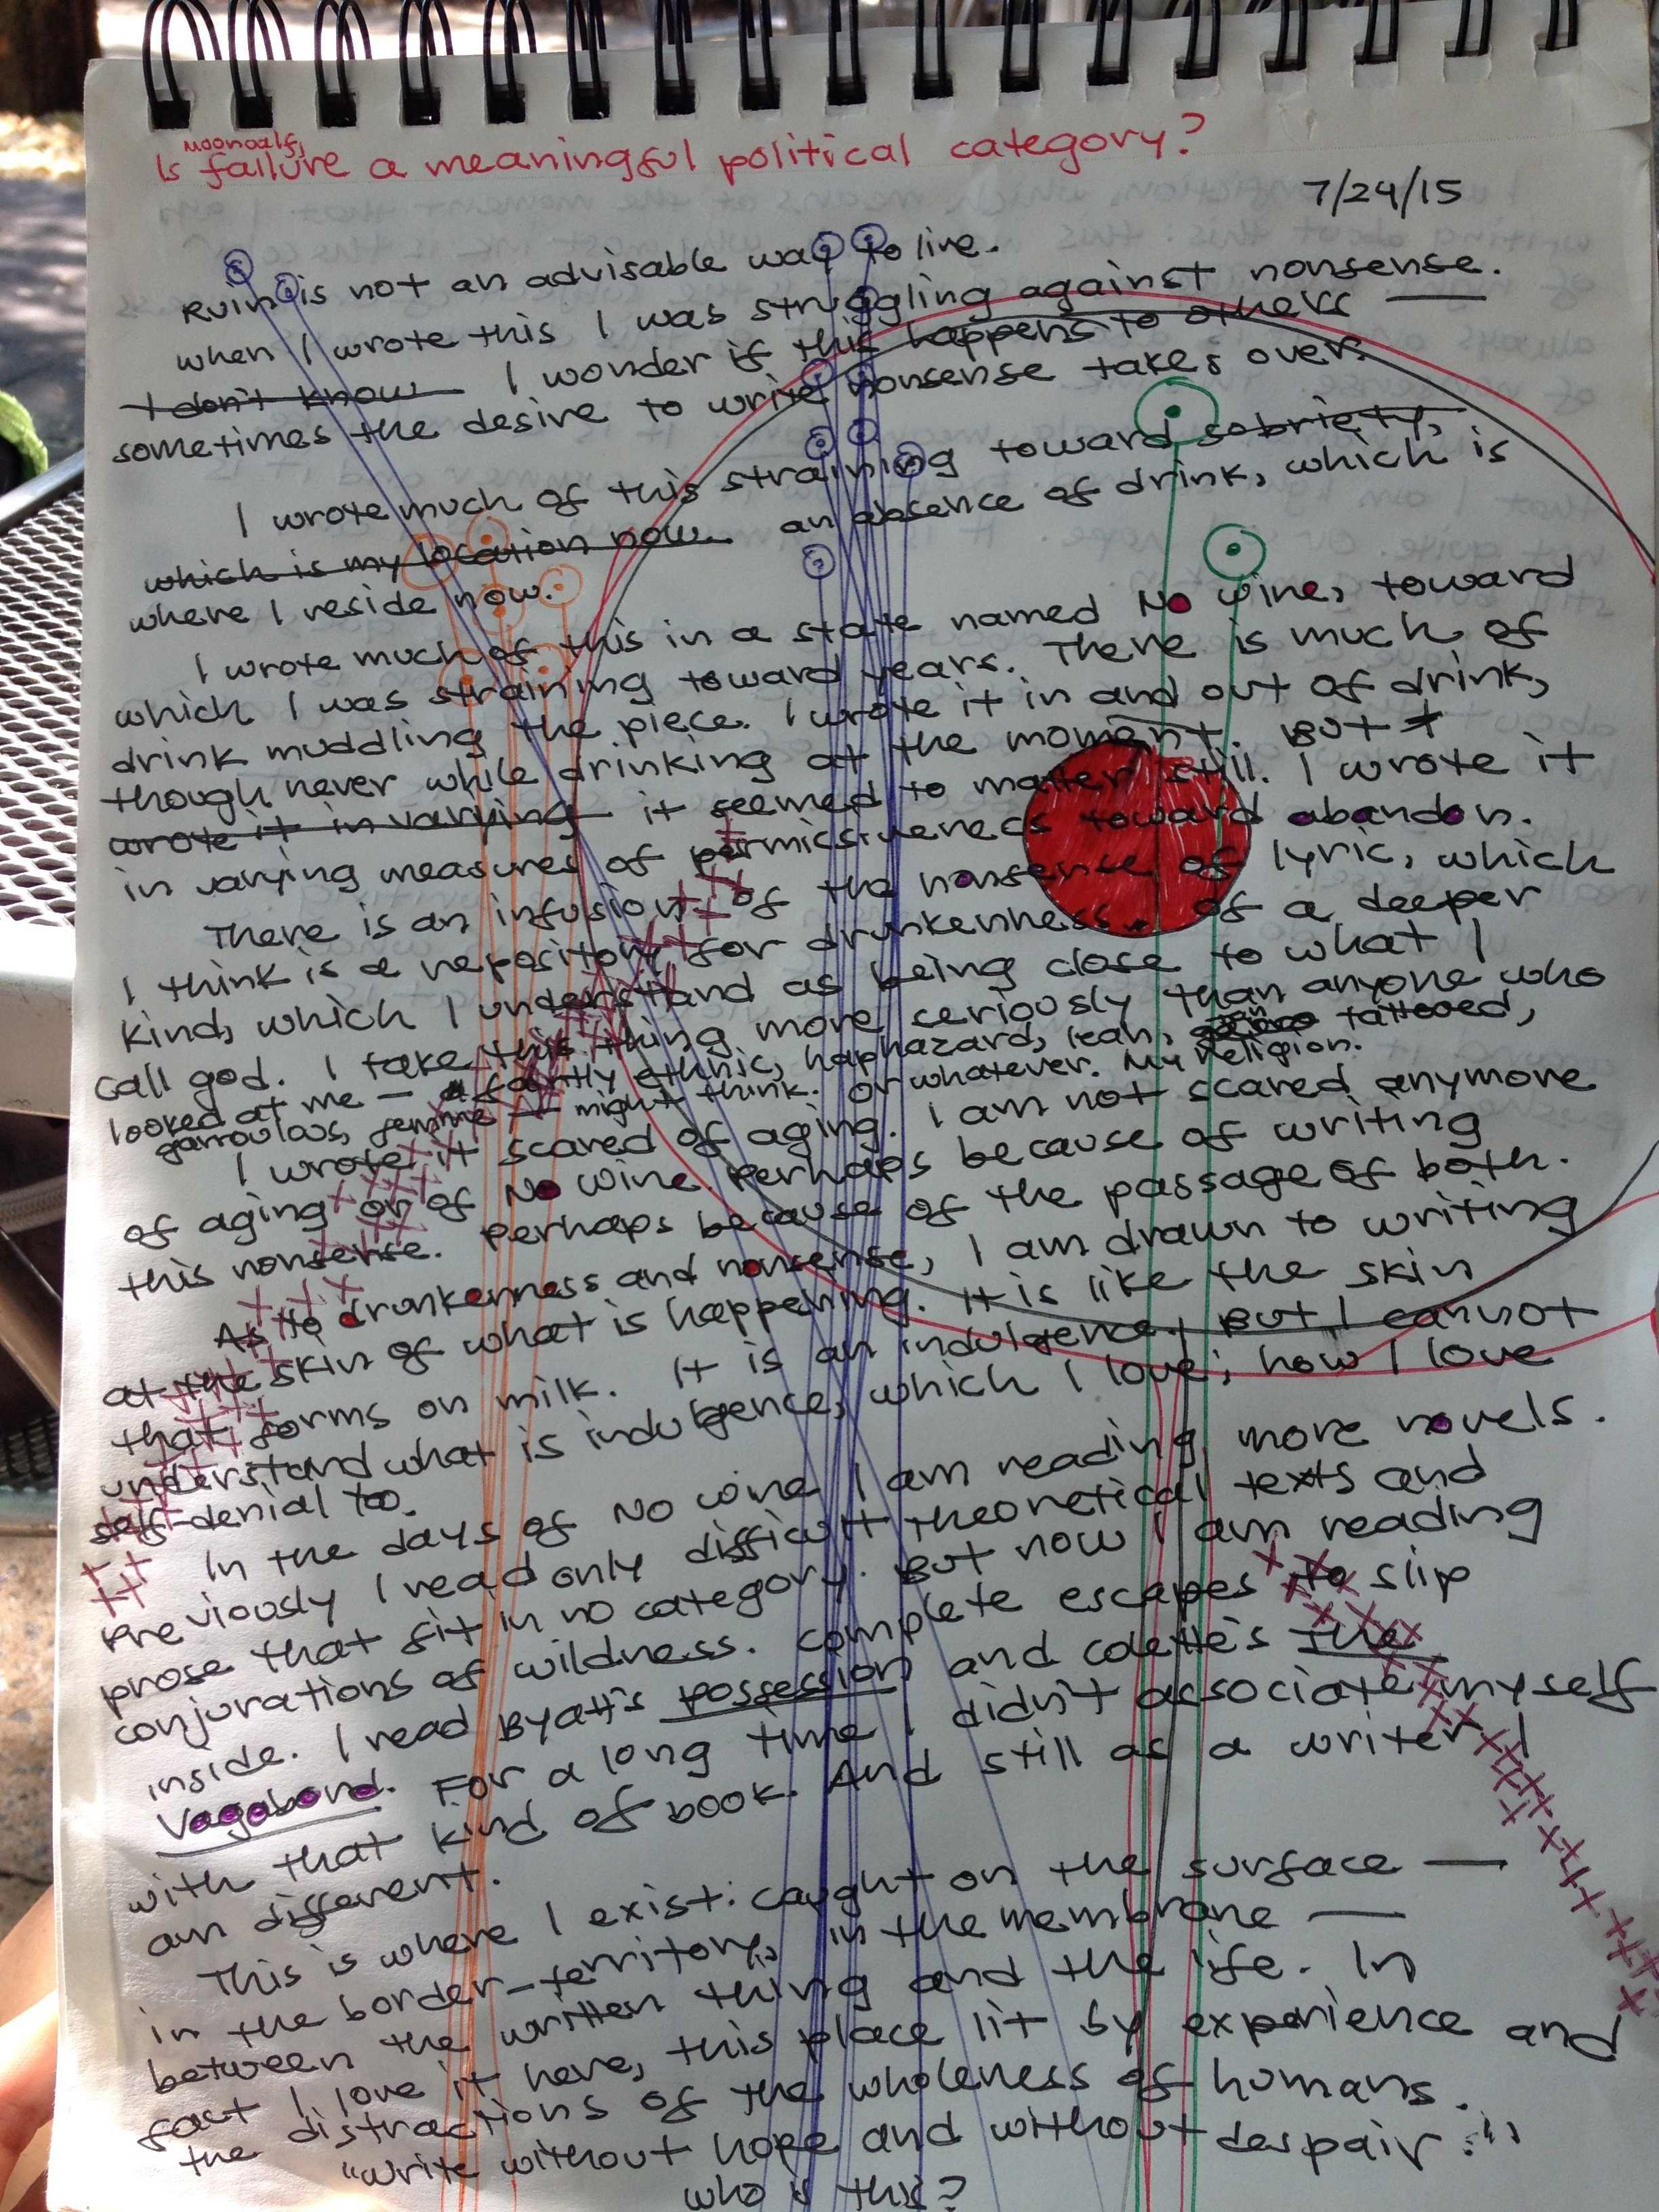 mooncalf,
Is failure a meaningful political category?
7/24/15
Ruin is not an advisable way to live.
when I wrote this I was struggling against nonsense.
I don't know I wonder if this happens to others —
sometimes the desire to write nonsense takes over.
I wrote much of this straining toward sobriety,
which is my location now. an absence of drink, which is
where I reside now.
I wrote much of this in a state named No wine, toward
which I was straining toward years. There is much of
drink muddling the piece. I wrote it in and out of drink,
though never while drinking at the moment. But I
wrote it in varying it seemed to matter still. I wrote it
in varying measures of permissiveness toward abandon.
There is an infusion of the nonsense of lyric, which
I think is a repository for drunkenness. of a deeper
kind, which I understand as being close to what I
call god. I take this thing more seriously than anyone who
looked at me — a faintly ethnic, haphazard, lean, tattooed,
garroulous, femme — might think. or whatever. My religion.
I wrote it scared of aging. I am not scared anymore
of aging or of No wine. Perhaps because of writing
this nonsense. Perhaps because of the passage of both.
As to drunkenness and nonsense, I am drawn to writing
at the skin of what is happening. It is like the skin
that forms on milk. It is an indulgence, But I cannot
understand what is indulgence, which I love; how I love
self-denial too.
In the days of No wine I am reading more novels.
Previously I read only difficult theoretical texts and
prose that fit in no category. But now I am reading
conjurations of wildness. complete escapes to slip
inside. I read Byatt's Possession and Colette's The
Vagabond. For a long time I didn't associate myself
with that kind of book. And still as a writer I
am different.
This is where I exist: caught on the surface —
in the border-territory, in the membrane —
between the written thing and the life. In
fact I love it here, this place lit by experience and
the distractions of the wholeness of humans.
"write without hope and without despair."
who is this?